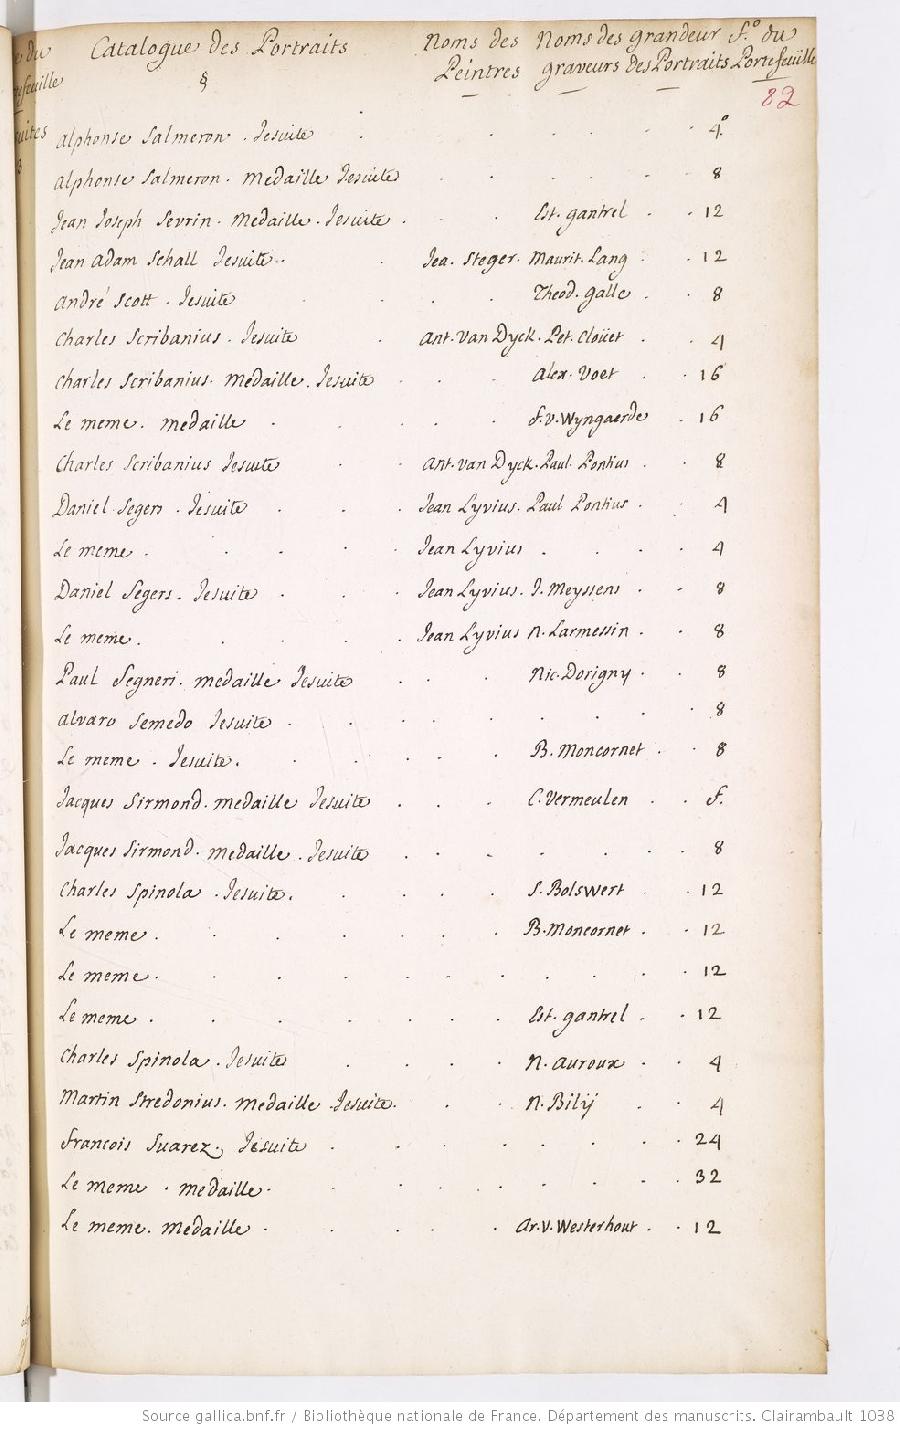 Catalogue des Portraits Noms des Noms des grandeur f.º du
Peintres graveurs des Portraits Portefeuille
§
82
Alphonse Salmeron . Jesuite 4º
Alphonse Salmeron . medaille Jesuite 8
Jean Joseph Sevrin . Medaille . Jesuite . Est. gantrel 12
Jean Adam Schall Jesuite . Jea. Steger . Maurit. Lang 12
André Scott . Jesuite Theod. galle 8
Charles Scribanius . Jesuite Ant. Van Dyck . Pet. Cloüet 4
Charles Scribanius . medaille . Jesuite Alex. Voet 16
Le meme . medaille f. v. Wyngaerde 16
Charles Scribanius Jesuite Ant. van Dyck . Paul Pontius 8
Daniel Segers . Jesuite Jean Lyvius . Paul Pontius 4
Le meme . Jean Lyvius 4
Daniel Segers . Jesuite Jean Lyvius . J. Meyssens 8
Le meme . Jean Lyvius N. Larmessin 8
Paul Segneri . medaille Jesuite Nic. Dorigny 8
Alvaro Semedo Jesuite . 8
Le meme . Jesuite . B. Moncornet 8
Jacques Sirmond . medaille Jesuite C. Vermeulen f.
Jacques Sirmond . medaille . Jesuite 8
Charles Spinola . Jesuite . S. Bolswert 12
Le meme . B. Moncornet 12
Le meme . 12
Le meme . Est. gantrel 12
Charles Spinola . Jesuite N. Auroux 4
Martin Stredonius . medaille Jesuite . N. Bilÿ 4
François Suarez . Jesuite 24
Le meme . medaille . 32
Le meme . medaille Ar. V. Westerhout 12
Source gallica.bnf.fr / Bibliothèque nationale de France. Département des manuscrits. Clairambault 1038